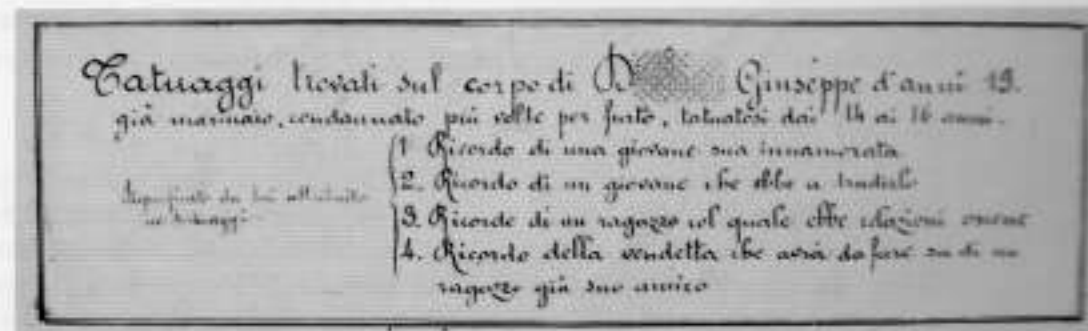 Tatuaggi trovati sul corpo di D Giuseppe d'anni 19.
già marinaio, condannato più volte per furto, tatuatosi dai 14 ai 16 anni.
1 Ricordo di una giovane sua innamorata
Significato da lui attribuito
ai tatuaggi
2. Ricordo di un giovane che ebbe a tradirlo
3. Ricordo di un ragazzo col quale ebbe relazioni oscene
4. Ricordo della vendetta che avrà da fare su di un
ragazzo già suo amico